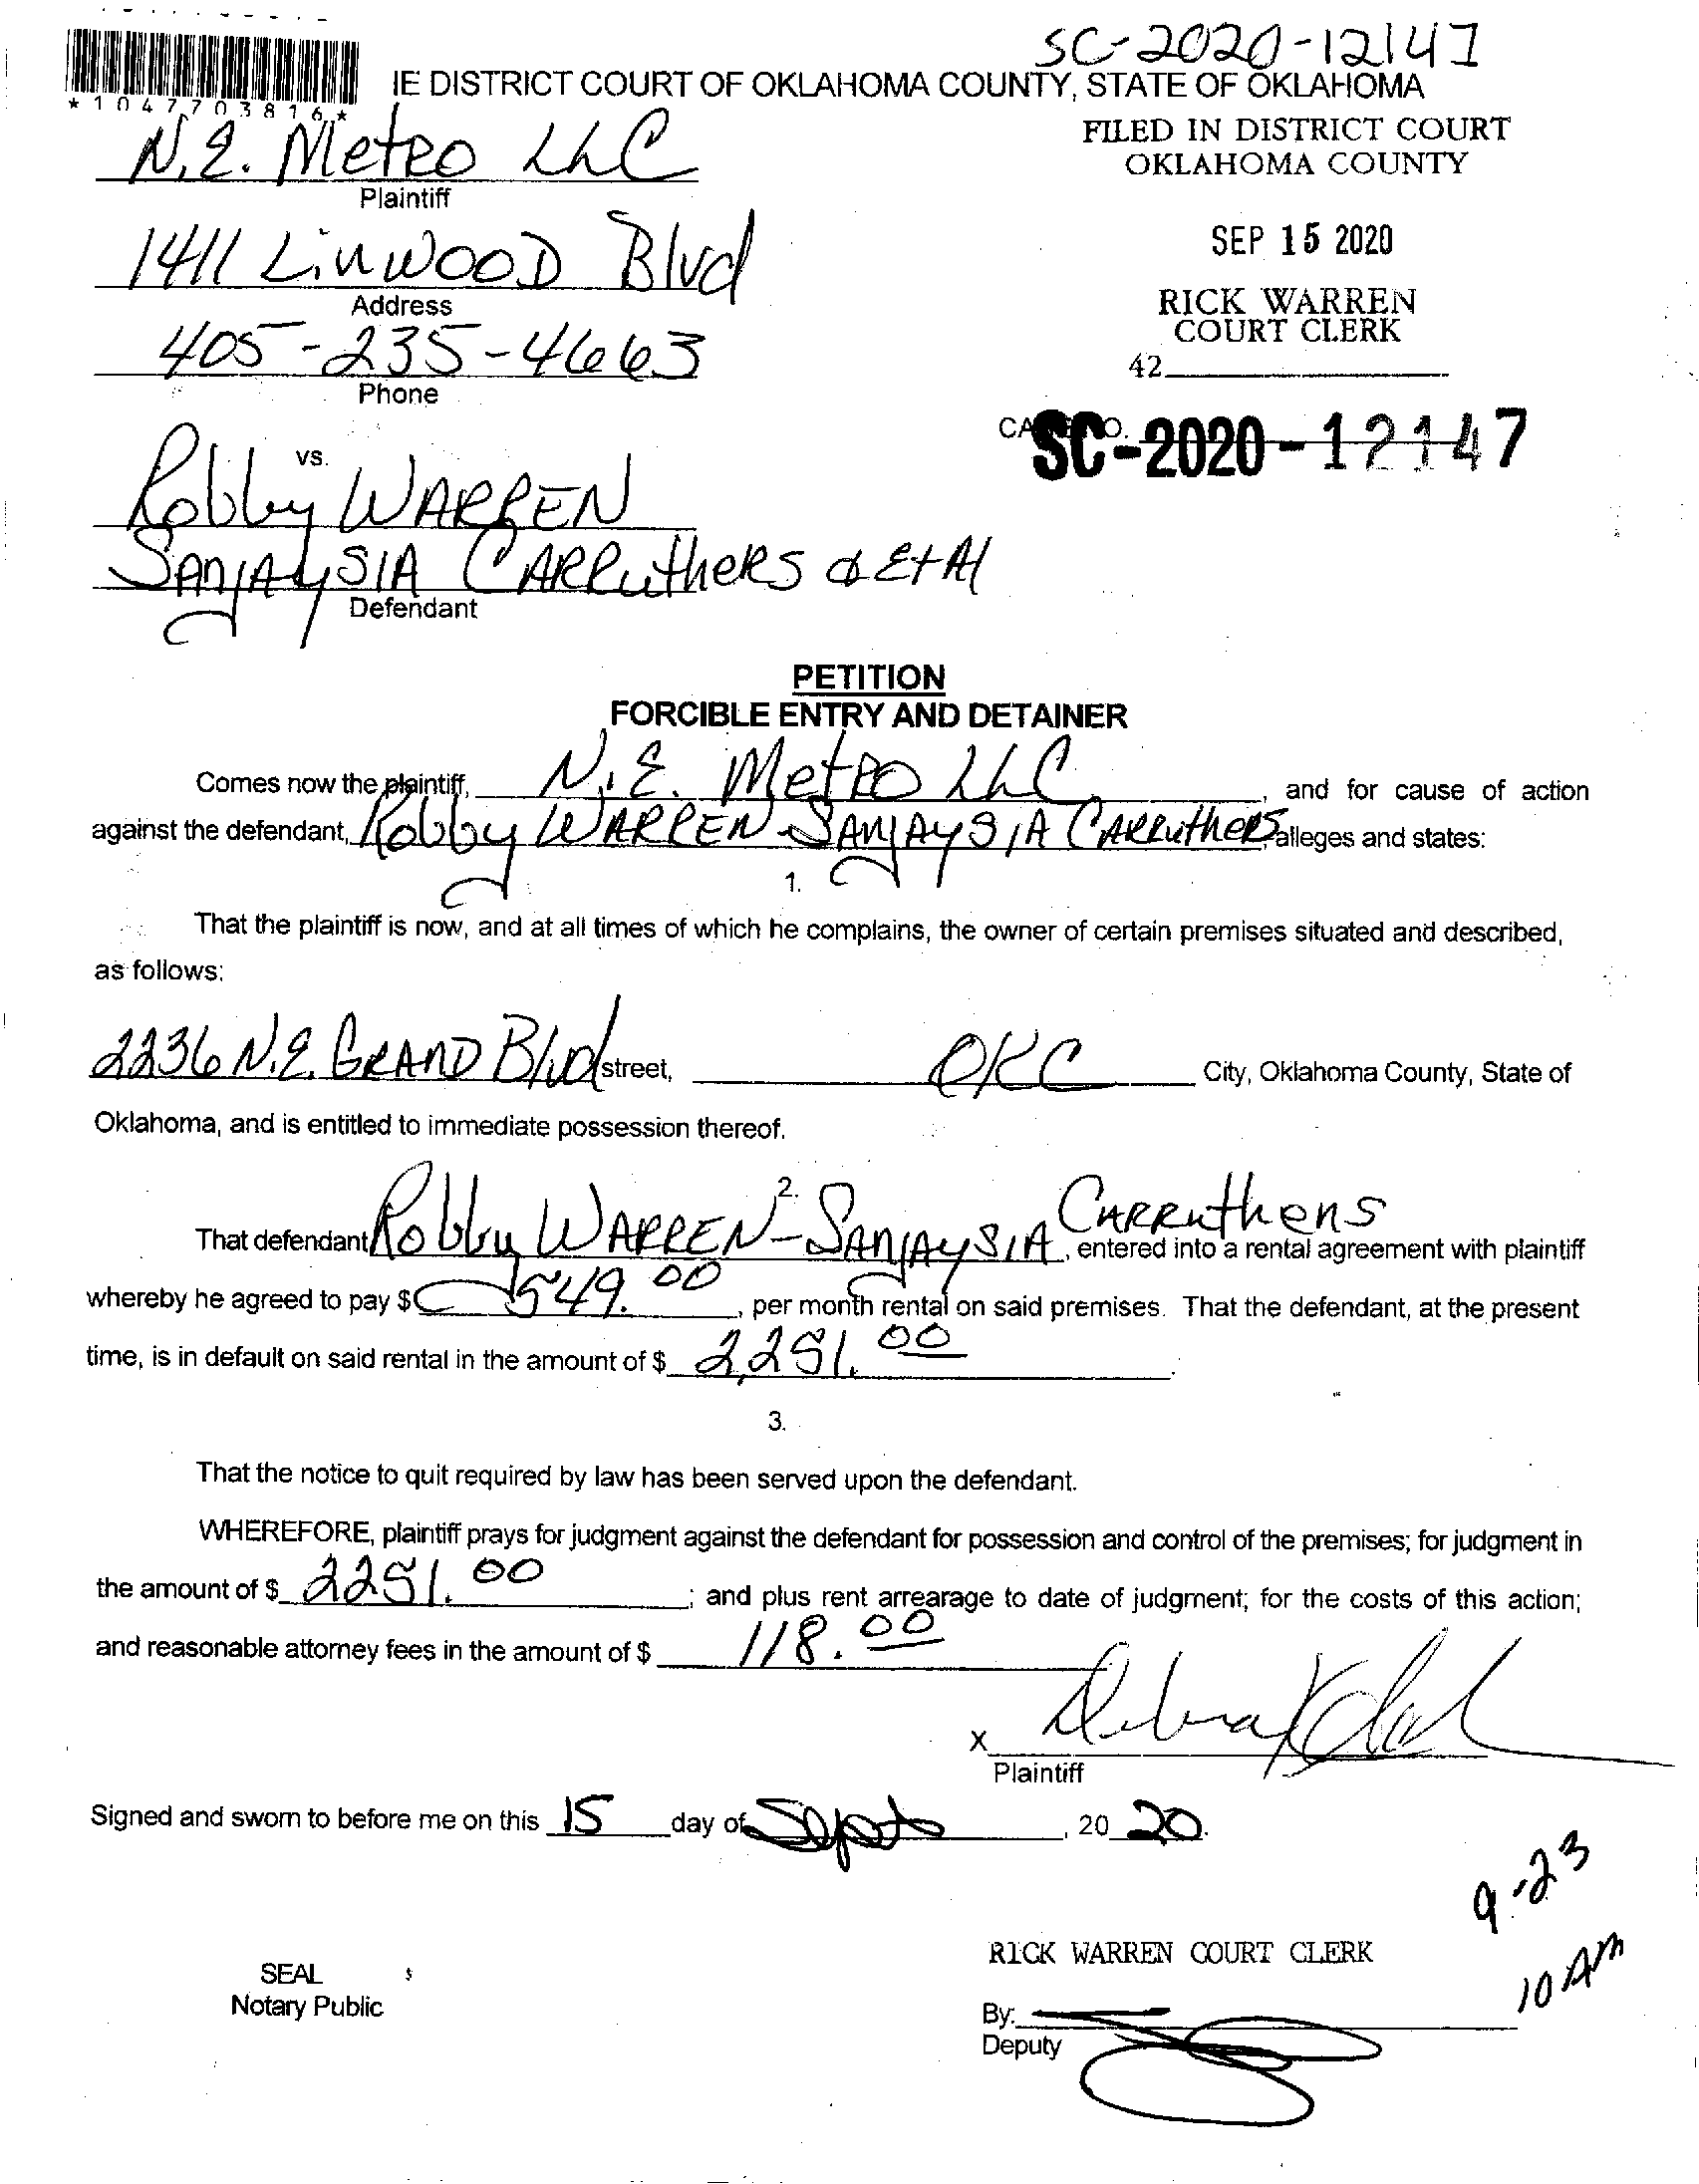 SC-2020-12147
IE DISTRICT COURT OF OKLAHOMA COUNTY, STATE OF OKLAHOMA
*1047703816*
FILED IN DISTRICT COURT
OKLAHOMA COUNTY
N.E. Metro LLC
Plaintiff
SEP 15 2020
1411 Linwood Blvd
Address
RICK WARREN
COURT CLERK
405-235-4663
Phone
42
SC-2020-12147
vs.
Robby WARREN
SANJAYSIA CARRuthers & Et Al
Defendant
PETITION
FORCIBLE ENTRY AND DETAINER
Comes now the plaintiff, N.E. Metro LLC, and for cause of action
against the defendant, Robby WARREN - SANJAYSIA CARRuthers, alleges and states:
1.
That the plaintiff is now, and at all times of which he complains, the owner of certain premises situated and described,
as follows:
2236 N.E. GRAND Blvd street, OKC City, Oklahoma County, State of
Oklahoma, and is entitled to immediate possession thereof.
2.
That defendant Robby WARREN - SANJAYSIA CARRuthers, entered into a rental agreement with plaintiff
whereby he agreed to pay $ 549.00, per month rental on said premises. That the defendant, at the present
time, is in default on said rental in the amount of $ 2,251.00.
3.
That the notice to quit required by law has been served upon the defendant.
WHEREFORE, plaintiff prays for judgment against the defendant for possession and control of the premises; for judgment in
the amount of $ 2251.00; and plus rent arrearage to date of judgment; for the costs of this action;
and reasonable attorney fees in the amount of $ 118.00
X
Plaintiff
Signed and sworn to before me on this 15 day of Sept, 20 20.
9-23
10 AM
RICK WARREN COURT CLERK
SEAL
Notary Public
By:
Deputy